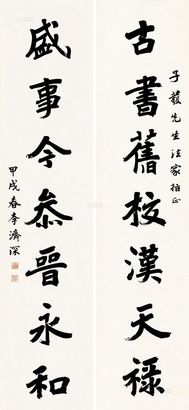 古書舊校漢天祿
子馥先生法家雅正
盛事今叅晉永和
甲戌春李濟深